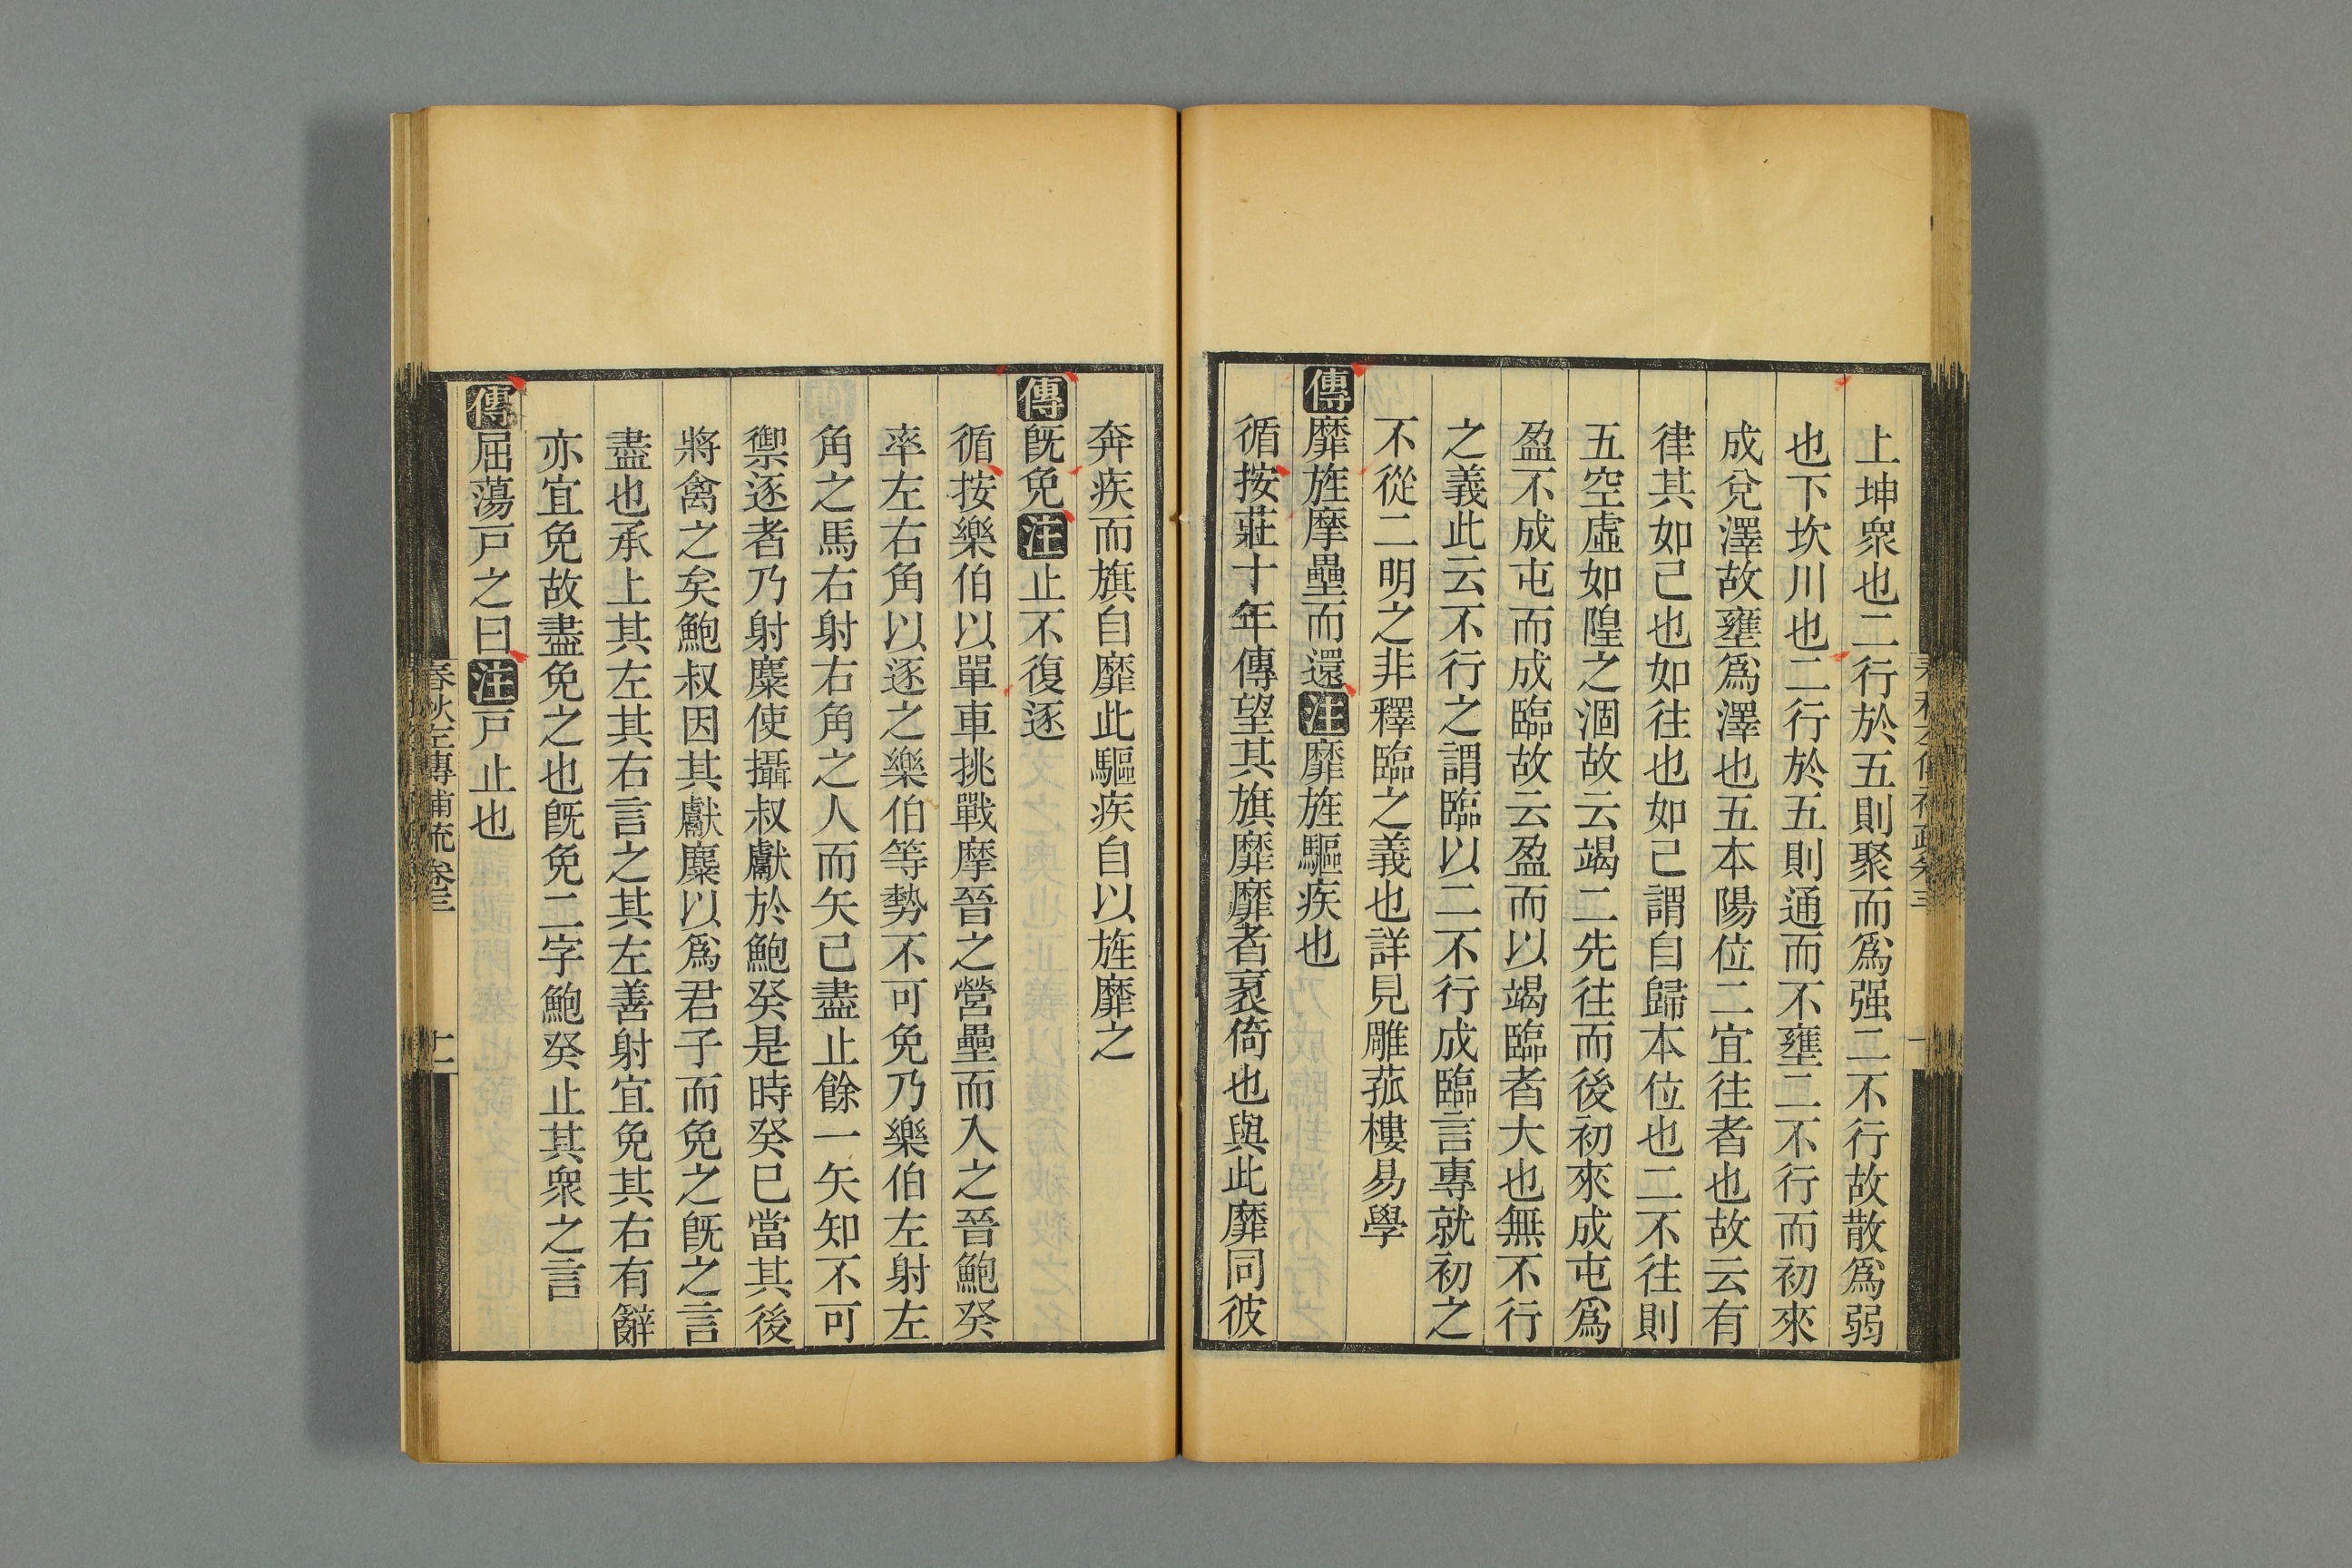 上坤衆也二行於五則聚而爲强二不行故散爲弱
也下坎川也二行於五則通而不壅二不行而初來
成兌澤故壅爲澤也五本陽位二宜往者也故云有
律其如己也如往也如己謂自歸本位也二不往則
五空虛如隍之涸故云竭二先往而後初來成屯爲
盈不成屯而成臨故云盈而以竭臨者大也無不行
之義此云不行之謂臨以二不行成臨言專就初之
不從二明之非釋臨之義也詳見雕菰樓易學
傳靡旌摩壘而還注靡旌驅疾也
循按莊十年傳望其旗靡靡者衺倚也與此靡同彼
奔疾而旗自靡此驅疾自以旌靡之
傳既免注止不復逐
循按樂伯以單車挑戰摩晉之營壘而入之晉鮑癸
率左右角以逐之樂伯等勢不可免乃樂伯左射左
角之馬右射右角之人而矢已盡止餘一矢知不可
禦逐者乃射麋使攝叔獻於鮑癸是時癸已當其後
將禽之矣鮑叔因其獻麋以爲君子而免之既之言
盡也承上其左其右言之其左善射宜免其右有辭
亦宜免故盡免之也既免二字鮑癸止其衆之言
傳屈蕩戸之曰注戸止也
春秋左傳補疏卷三
十二